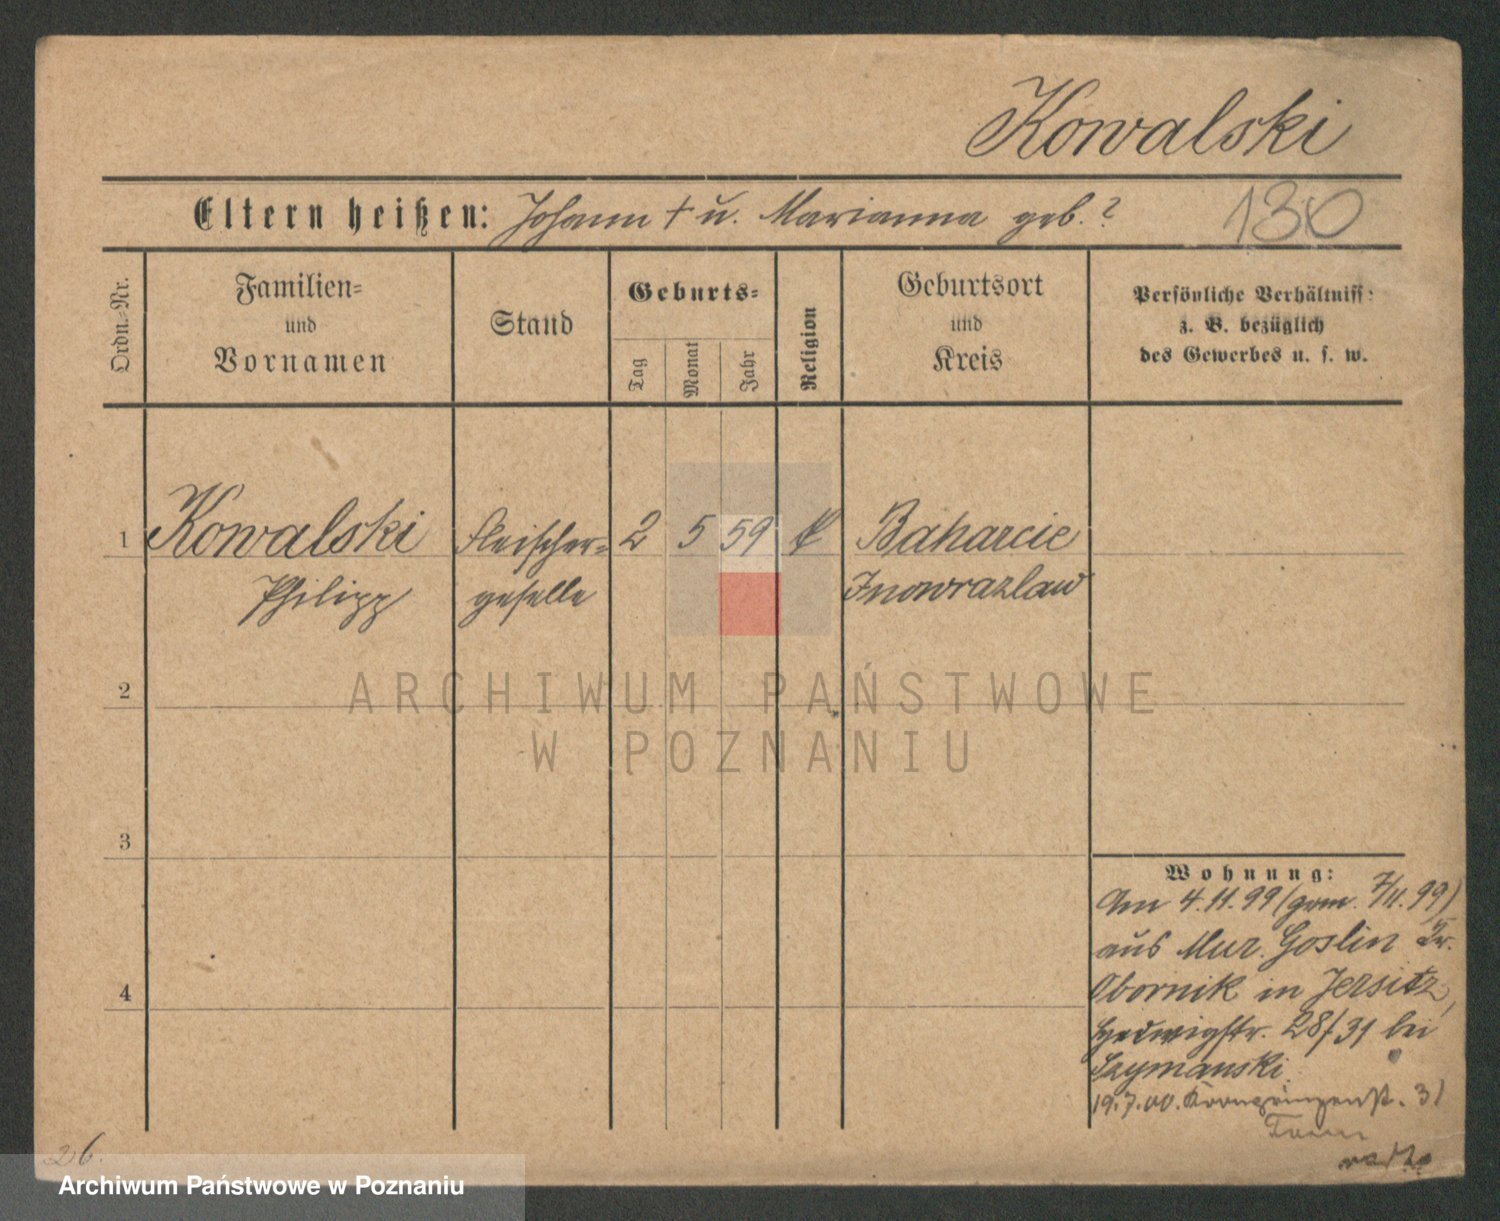 Kowalski
Eltern heißen: Johann † u. Marianna geb. ?
130
Ordn.-Nr.
Familien-
und
Vornamen
Stand
Geburts-
Tag
Monat
Jahr
Religion
Geburtsort
und
Kreis
Persönliche Verhältniss:
z. B. bezüglich
des Gewerbes u. s. w.
1 Kowalski Fleischer- 2 5 59 k Baharcie
Philipp geselle Inowrazlaw
2
3
4
Wohnung:
Am 4.11.99 (gem. 7/11.99)
aus Mur. Goslin Kr.
Obornik in Jersitz,
Hedwigstr. 28/31 bei
Szymanski
19.7.00. Kronprinzenst. 31
26.
ARCHIWUM PAŃSTWOWE
W POZNANIU
Archiwum Państwowe w Poznaniu